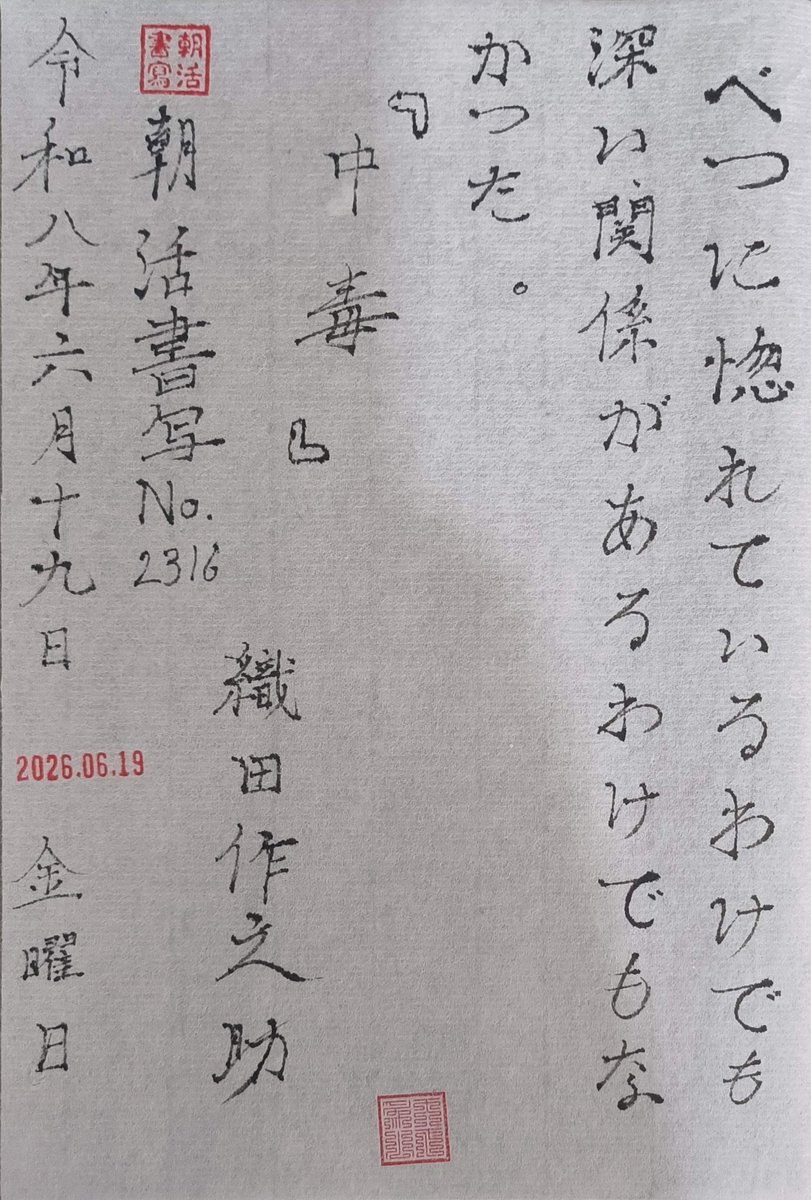 べつに惚れているわけでも
深い関係があるわけでもな
かつた。
『中毒』
織田作之助
朝活書写
朝活書写No.2316
令和八年六月十九日
2026.06.19
金曜日